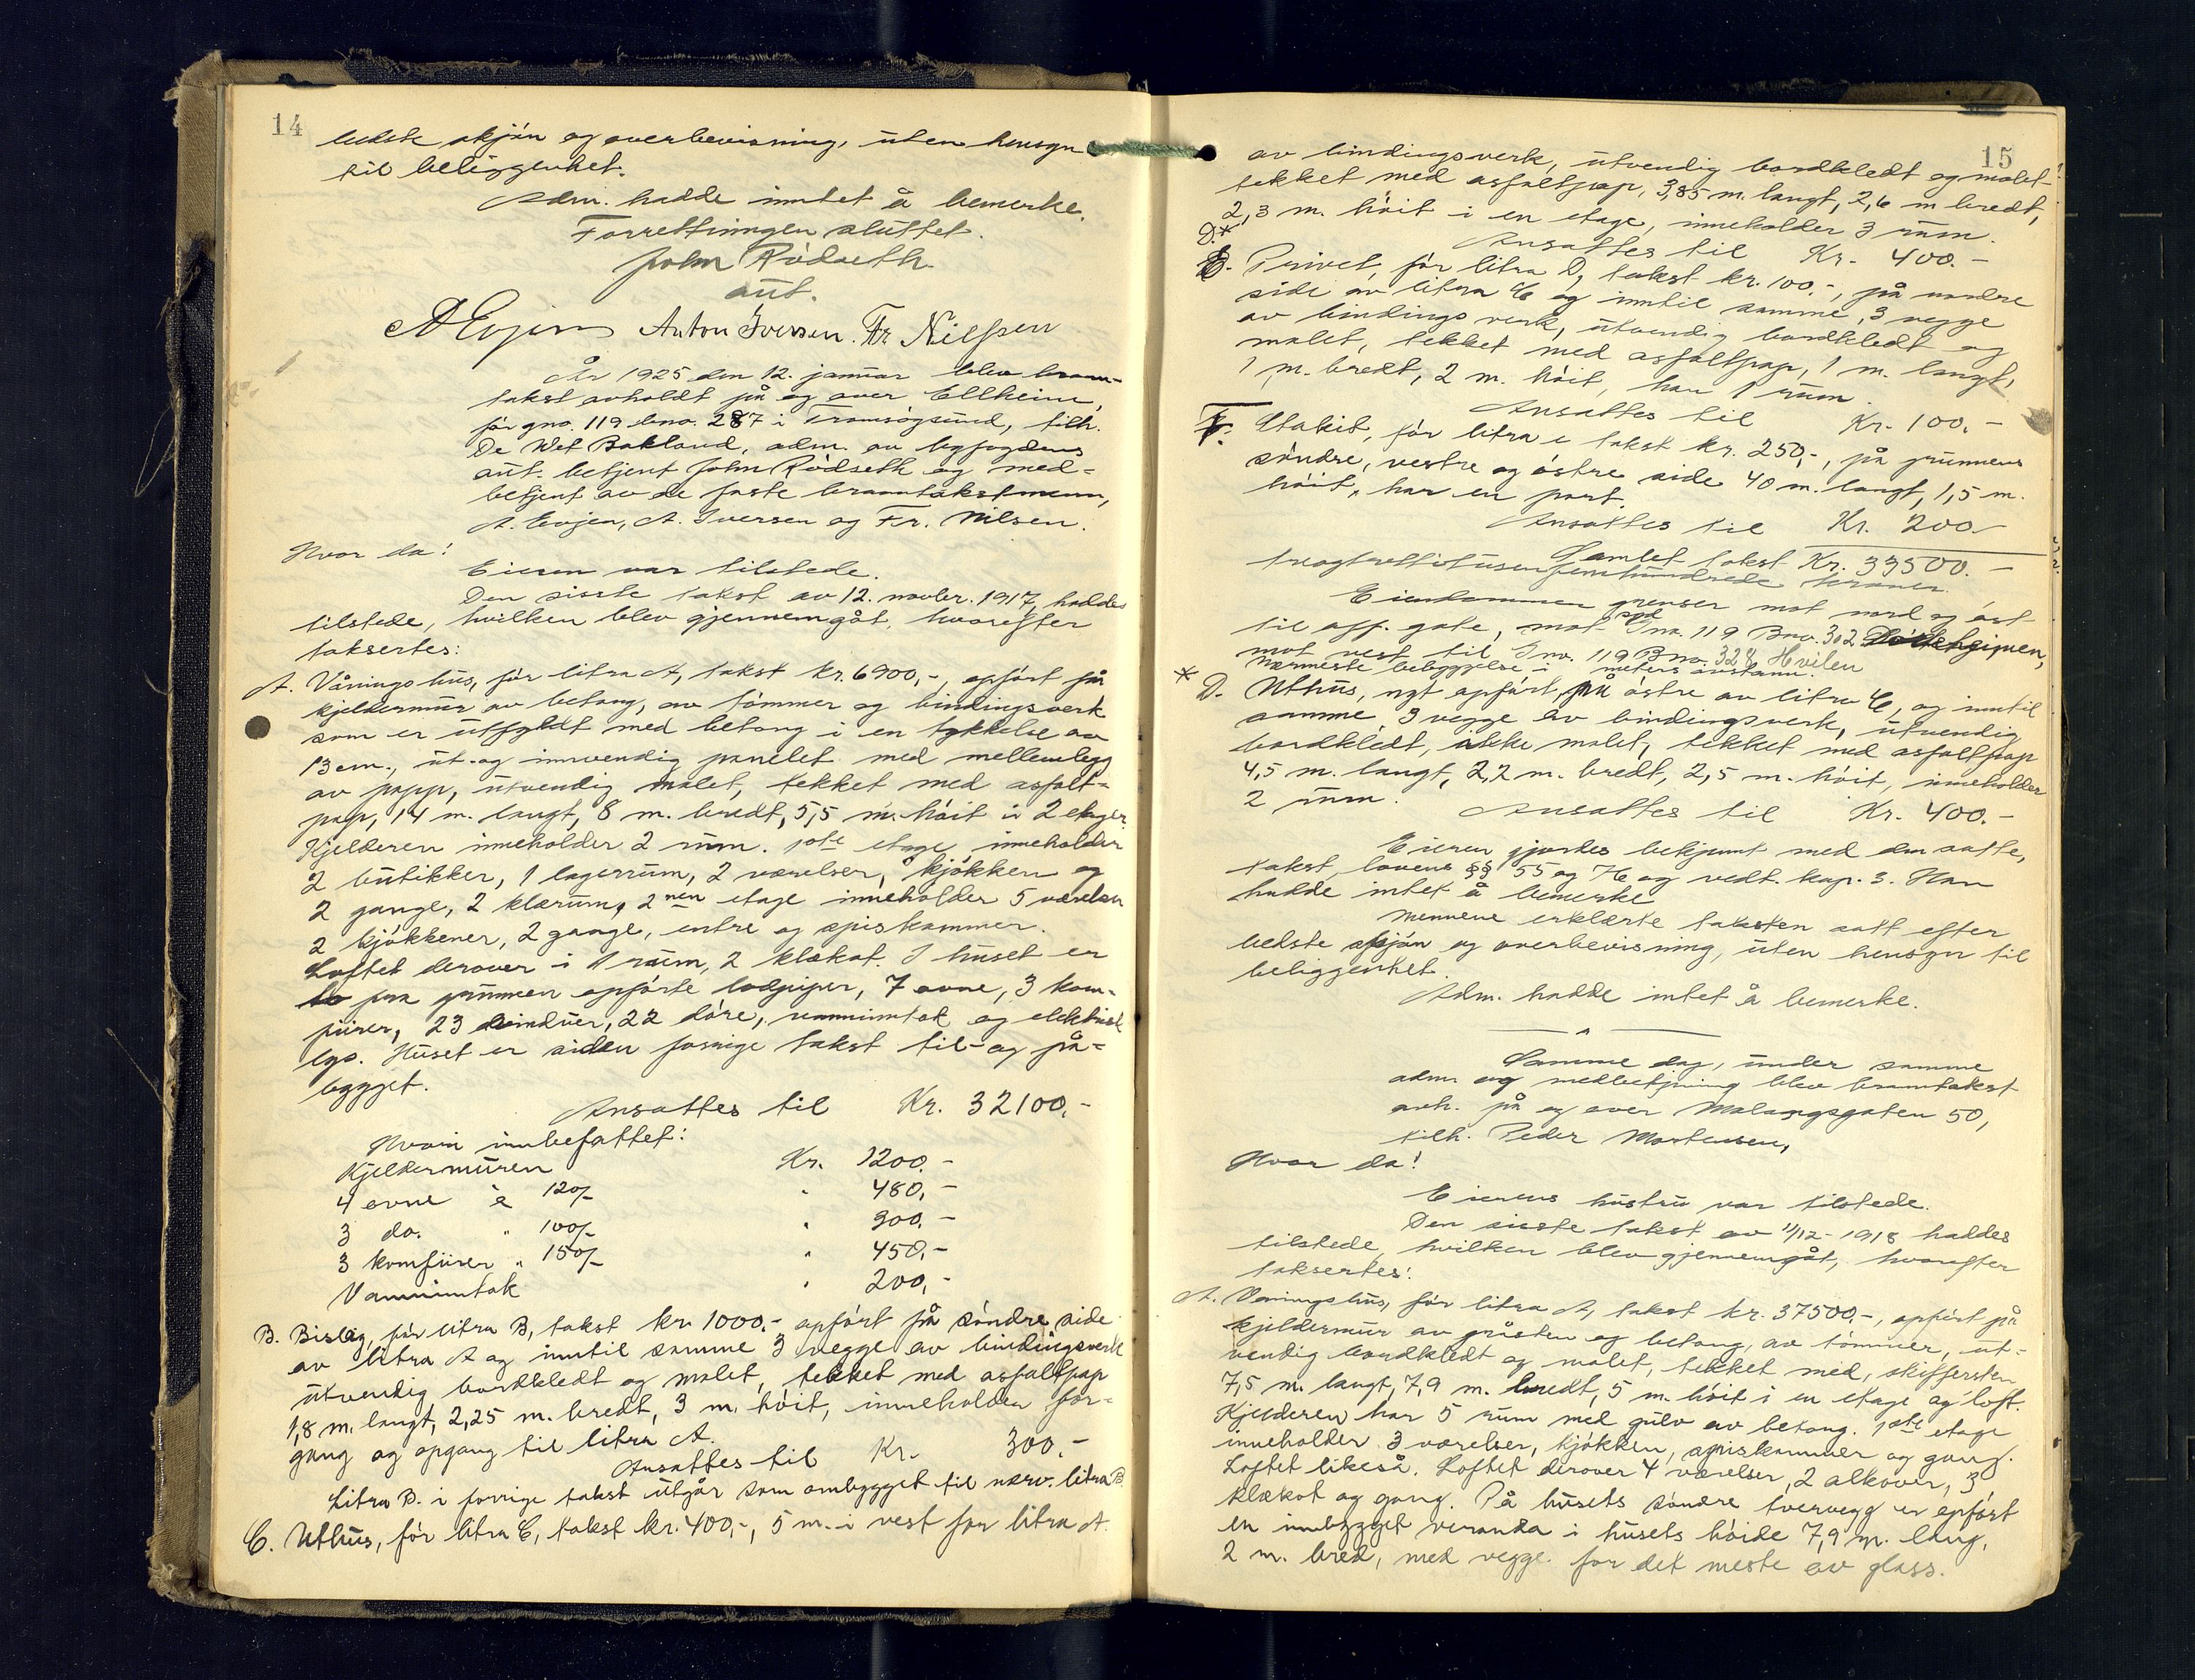 14
bedste skjön og overbevisning, uten hensyn
til beliggenhet.
Adm. hadde intet å bemerke.
Forretningen sluttet.
John Rödseth
aut.
A Evjen Anton Iversen. Fr Nilsen
År 1925 den 12. januar blev brann-
takst avholdt på og over Ellheim,
før gno. 119 bno. 287 i Tromsøysund, tilh.
De Wet Bakland, adm. av byfogdens
aut. betjent John Rödseth og med-
betjent av de faste branntakstmenn,
A. Evjen, A. Iversen og Fr. Nilsen.
Hvor da!
Eieren var tilstede.
Den sisste takst av 12. novbr. 1917, haddes
tilstede, hvilken blev gjennemgåt, hvorefter
taksertes:
A. Våningshus, før litra A, takst kr. 6900,-, opført på
kjeldermur av betong, av tömmer og bindingsverk
som er utfyldt med betong i en tykkelse av
13 cm., ut- og innvendig panelet med mellemlegg
av papp, utvendig malet, tekket med asfalt-
pap, 14 m. langt, 8 m. bredt, 5,5 m. höit i 2 etager.
Kjelderen inneholder 2 rum. 1ste etage inneholder
2 butikker, 1 lagerrum, 2 værelser, kjökken og
2 gange, 2 klærum, 2nen etage inneholder 5 værelser
2 kjökkener, 2 gange, entre og spiskammer.
Loftet derover i 1 rum, 2 klækot. I huset er
to fra grunnen opførte lodpiper, 7 ovne, 3 kom-
fürer, 23 vinduer, 22 döre, vanninntak og elektrisk
lys. Huset er siden forrige takst til- og på-
bygget.
Ansattes til Kr. 32100,-
Hvori innbefattet:
Kjeldermuren Kr. 1200.-
4 ovne à 120/- " 480,-
3 do. " 100/- " 300.-
3 komfürer " 150/- " 450,-
Vanninntak " 200,-
B. Bislag, før litra B, takst kr. 1000.- opført på söndre side
av litra A og inntil samme 3 vegge av bindingsverk
utvendig bordkledt og malet, tekket med asfaltpap
1,8 m. langt, 2,25 m. bredt, 3 m. höit, inneholder for-
gang og opgang til litra A.
Ansattes til Kr. 300.-
Litra B. i forrige takst utgår som ombygget til nærv. litra B.
C. Uthus, før litra C, takst kr. 400,-, 5 m. i vest for litra A.
15
av bindingsverk, utvendig bordkledt og malet
tekket med asfaltpap, 3,85 m. langt, 2,6 m bredt,
2,3 m. höit i en etage, inneholder 3 rum.
D.*
Ansattes til Kr. 400.-
E. Privet, før litra D, takst kr. 100.-, på nordre
side av litra C og inntil samme, 3 vegge
av bindingsverk, utvendig bordkledt og
malet, tekket med asfaltpap, 1 m. langt,
1 m. bredt, 2 m. höit, har 1 rum.
Ansattes til Kr. 100.-
F. Stakit, før litra E takst kr. 250,-, på grunnens
söndre, vestre og östre side 40 m. langt, 1,5 m.
höit, har en port.
Ansattes til Kr. 200.-
Samlet takst Kr. 33500.-
treogtrettitusenfemhundrede kroner.
Eiendommen grenser mot nord og öst
til off. gate, mot syd Gno. 119 Bno. 302
mot vest til Gno. 119 Bno. 328 Hvilen
Nærmeste bebyggelse i meters avstann.
* D. Uthus, nyt opført, på östre av litra C, og inntil
samme, 3 vegge av bindingsverk, utvendig
bordkledt, ikke malet, tekket med asfaltpap
4,5 m. langt, 2,2 m. bredt, 2,5 m. höit, inneholder
2 rum.
Ansattes til Kr. 400.-
Eieren gjordes bekjent med den satte,
takst, lovens §§ 55 og 76 og vedt. kap. 3. Han
hadde intet å bemerke
Mennene erklærte taksten satt efter
bedste skjön og overbevisning, uten hensyn til
beliggenhet.
Adm. hadde intet å bemerke.
Samme dag, under samme
adm. og medbetjening blev branntakst
avh. på og over Malangsgaten 50,
tilh. Peder Mortensen,
Hvor da!
Eierens hustru var tilstede.
Den sisste takst av 11/12-1918 haddes
tilstede, hvilken blev gjennemgåt, hvorefter
taksertes:
A. Våningshus, før litra A, takst kr. 37500,-, opført på
kjeldermur av gråsten og betong, av tömmer, ut-
vendig bordkledt og malet, tekket med, skiffersten
7,5 m. langt, 7,9 m. bredt, 5 m. höit i en etage og loft.
Kjelderen har 5 rum med gulv av betong. 1ste etage
inneholder 3 værelser, kjökken, spiskammer og gang.
Loftet likeså. Loftet derover 4 værelser, 2 alkover, 3
klækot og gang. På husets söndre tvervegg er opført
en innbygget veranda i husets höide 7,9 m. lang,
2 m. bred, med vegge for det meste av glass.